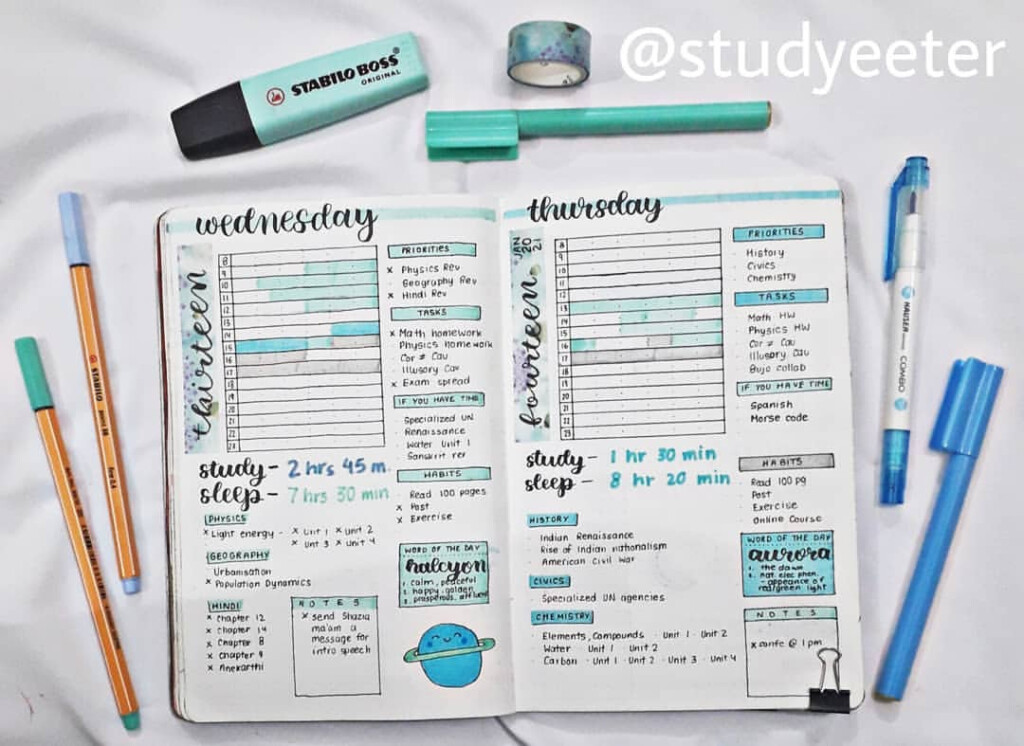 @studyeeter
STABILO BOSS
ORIGINAL
STABILO
HAUSER
COMBO
wednesday
thirteen
8
9
10
11
12
13
14
15
16
17
18
19
20
21
22
23
24
PRIORITIES
x Physics Rev
· Geography Rev
x Hindi Rev
TASKS
x Math homework
· Physics homework
· Cor ≠ Cau
· Illusory Cau
x Exam spread
IF YOU HAVE TIME
· Specialized UN
· Renaissance
· Water Unit 1
· Sanskrit rev
HABITS
· Read 100 pages
x Post
x Exercise
study - 2 hrs 45 m
sleep - 7 hrs 30 min
PHYSICS
x Light energy - x Unit 1 x Unit 2
x Unit 3 x Unit 4
GEOGRAPHY
· Urbanisation
x Population Dynamics
HINDI
x Chapter 12
x Chapter 14
x Chapter 8
x Chapter 9
x Anekarthi
NOTES
x send Shazia
ma'am a
message for
intro speech
WORD OF THE DAY
halcyon
1. calm, peaceful
2. happy, golden
3. prosperous, affluent
thursday
JAN
20
21
fourteen
8
9
10
11
12
13
14
15
16
17
18
19
20
21
22
23
PRIORITIES
· History
· Civics
· Chemistry
TASKS
· Math HW
· Physics HW
· Cor ≠ Cau
· Illusory Cau
· Bujo collab
IF YOU HAVE TIME
· Spanish
· Morse code
HABITS
· Read 100 pg
· Post
· Exercise
· Online Course
study - 1 hr 30 min
sleep - 8 hr 20 min
HISTORY
· Indian Renaissance
· Rise of Indian nationalism
· American Civil War
CIVICS
· Specialized UN agencies
CHEMISTRY
· Elements, Compounds · Unit 1 · Unit 2
· Water · Unit 1 · Unit 2
· Carbon · Unit 1 · Unit 2 · Unit 3 · Unit 4
WORD OF THE DAY
aurora
1. the dawn
2. nat. elec phen.
- appearance of
red/green light
NOTES
@ 1 pm